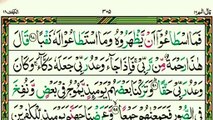 قال الم ١٦ ٣٠٥ الكهف ١٨
فَمَا اسْطَاعُوْٓا اَنْ يَّظْهَرُوْهُ وَمَا اسْتَطَاعُوْا لَهٗ نَقْبًا قَالَ
هٰذَا رَحْمَةٌ مِّنْ رَّبِّيْ فَاِذَا جَآءَ وَعْدُ رَبِّيْ جَعَلَهٗ دَكَّآءَ وَكَانَ
وَعْدُ رَبِّيْ حَقًّا وَتَرَكْنَا بَعْضَهُمْ يَوْمَئِذٍ يَّمُوْجُ فِيْ بَعْضٍ وَّنُفِخَ
فِي الصُّوْرِ يَوْمَئِذٍ لِّلْكٰفِرِيْنَ